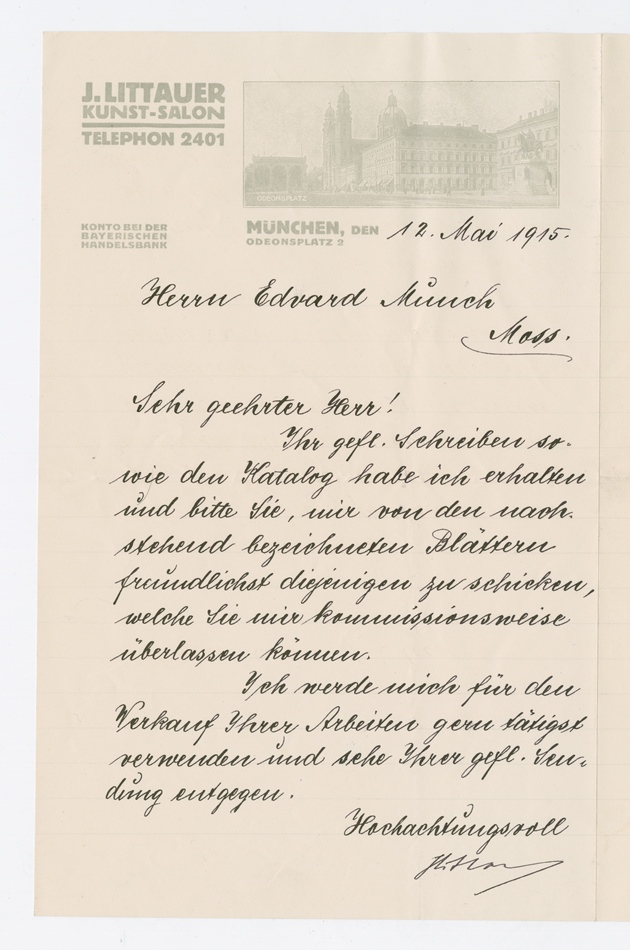 J. LITTAUER
KUNST-SALON
TELEPHON 2401
ODEONSPLATZ
KONTO BEI DER
BAYERISCHEN
HANDELSBANK
MÜNCHEN, DEN 12. Mai 1915.
ODEONSPLATZ 2
Herrn Edvard Munch
Moss.
Sehr geehrter Herr!
Ihr gefl. Schreiben so-
wie den Katalog habe ich erhalten
und bitte Sie, mir von den nach-
stehend bezeichneten Blättern
freundlichst diejenigen zu schicken,
welche Sie mir kommissionsweise
überlassen können.
Ich werde mich für den
Verkauf Ihrer Arbeiten gern tätigst
verwenden und sehe Ihrer gefl. Sen-
dung entgegen.
Hochachtungsvoll